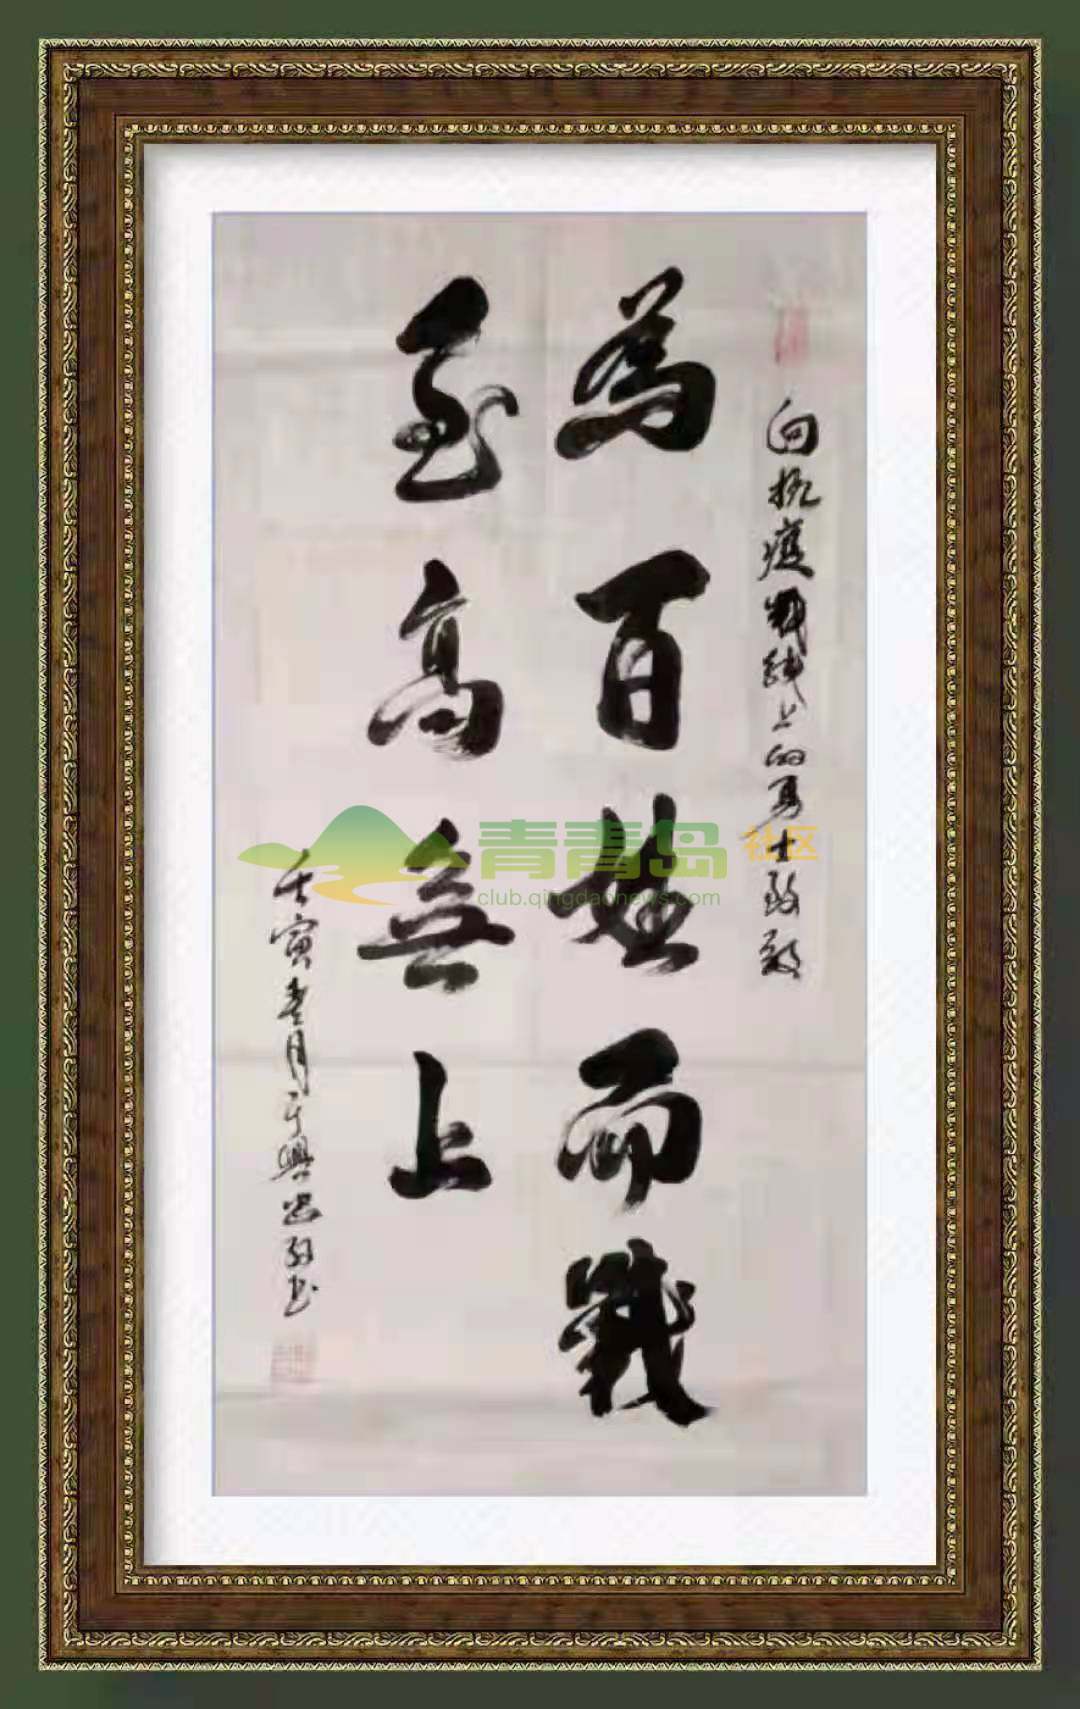 向抗疫战线上的勇士致敬
為百姓而戰
至高無上
壬寅春月于興忠敬书
青青岛 社区
club.qingdaonews.com